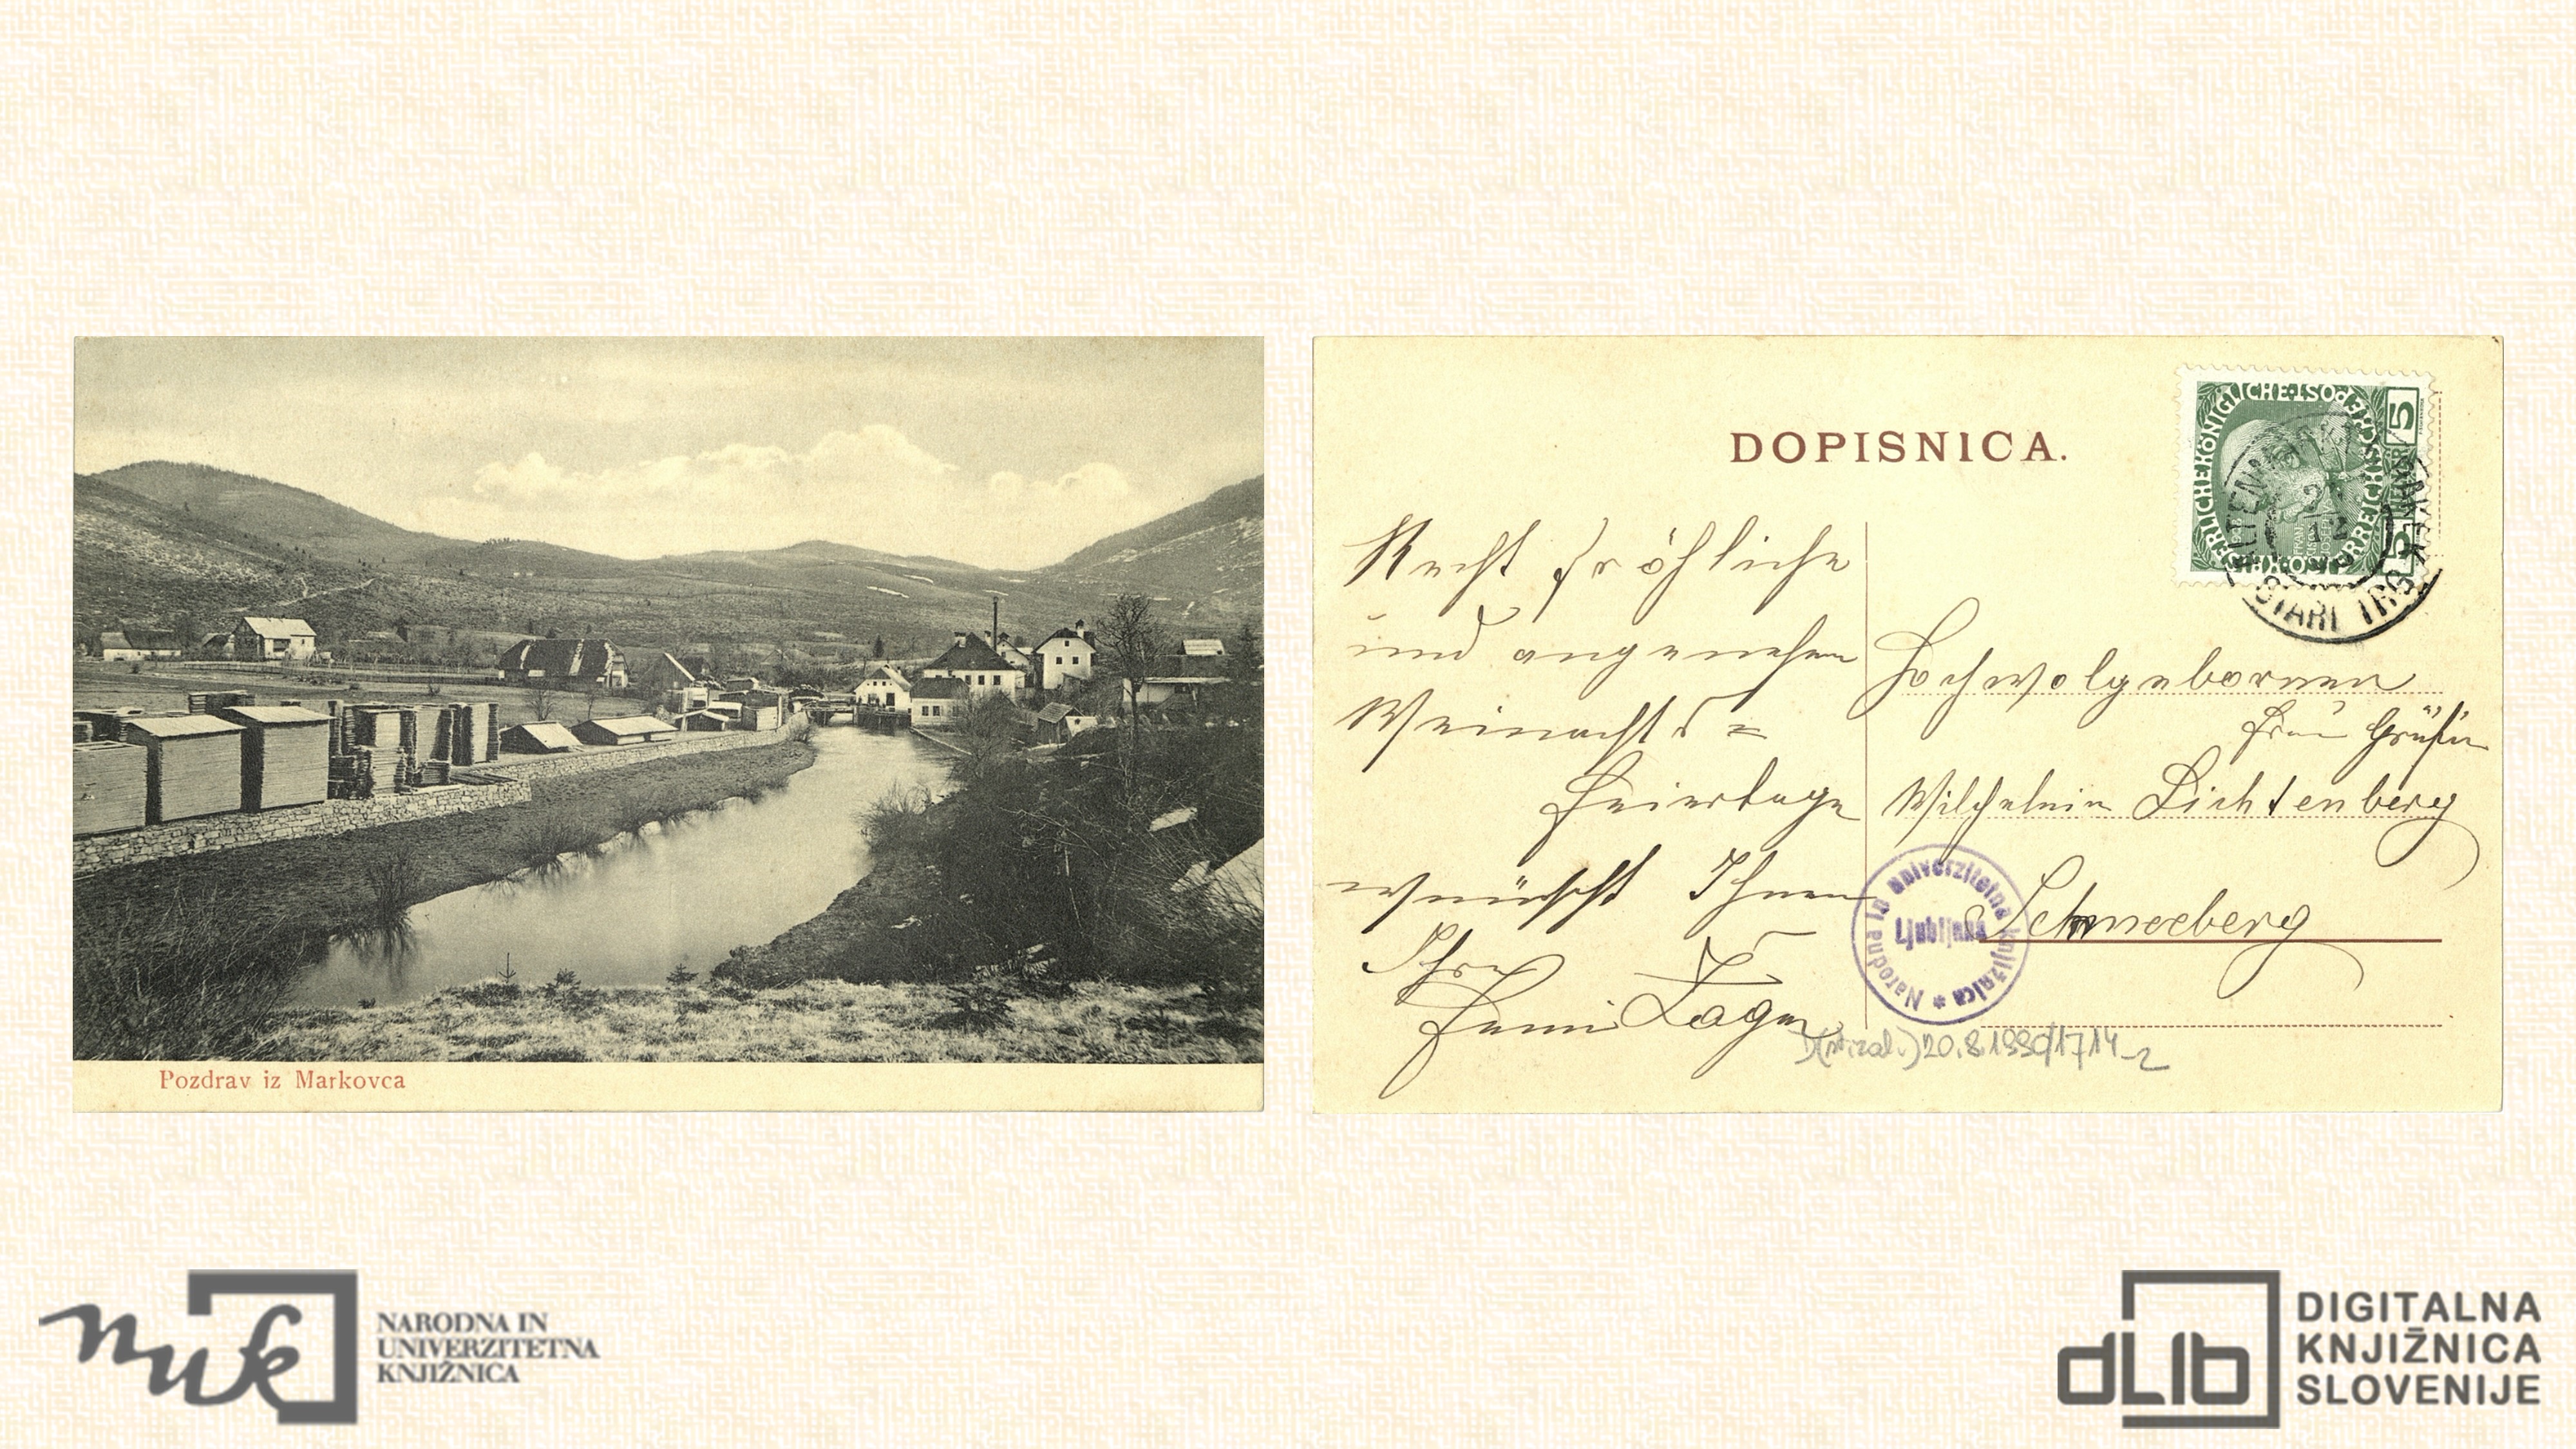 Pozdrav iz Markovca
DOPISNICA.
KAISERLICHE KÖNIGLICHE ÖSTERREICHISCHE POST
5 5
ALTENMARKT
12
STARI TRG
Recht fröhliche
und angenehm
Weinachts=
feiertage
wünscht Ihnen
Ihre
Lager
Hochwolgebornen
Frau Gräfin
Wilhelmin Lichtenberg
Schneeberg
Narodna in univerzitetna knjižnica *
Ljubljana
20.8.1990/1714
nuk
NARODNA IN
UNIVERZITETNA
KNJIŽNICA
dLib
DIGITALNA
KNJIŽNICA
SLOVENIJE